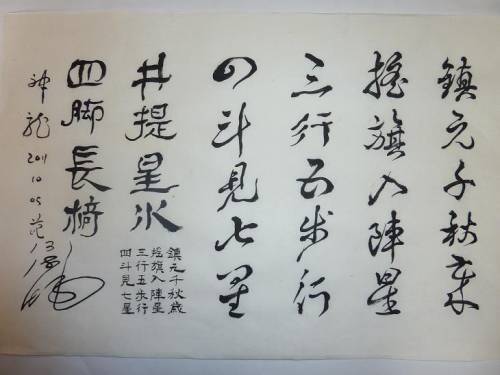 鎮元千秋歲
搖旗入陣星
三行五步行
四斗見七星
井提星水
鎮元千秋歲
搖旗入陣星
三行五步行
四斗見七星
四脚長椅
神龍 2011 10 05 范